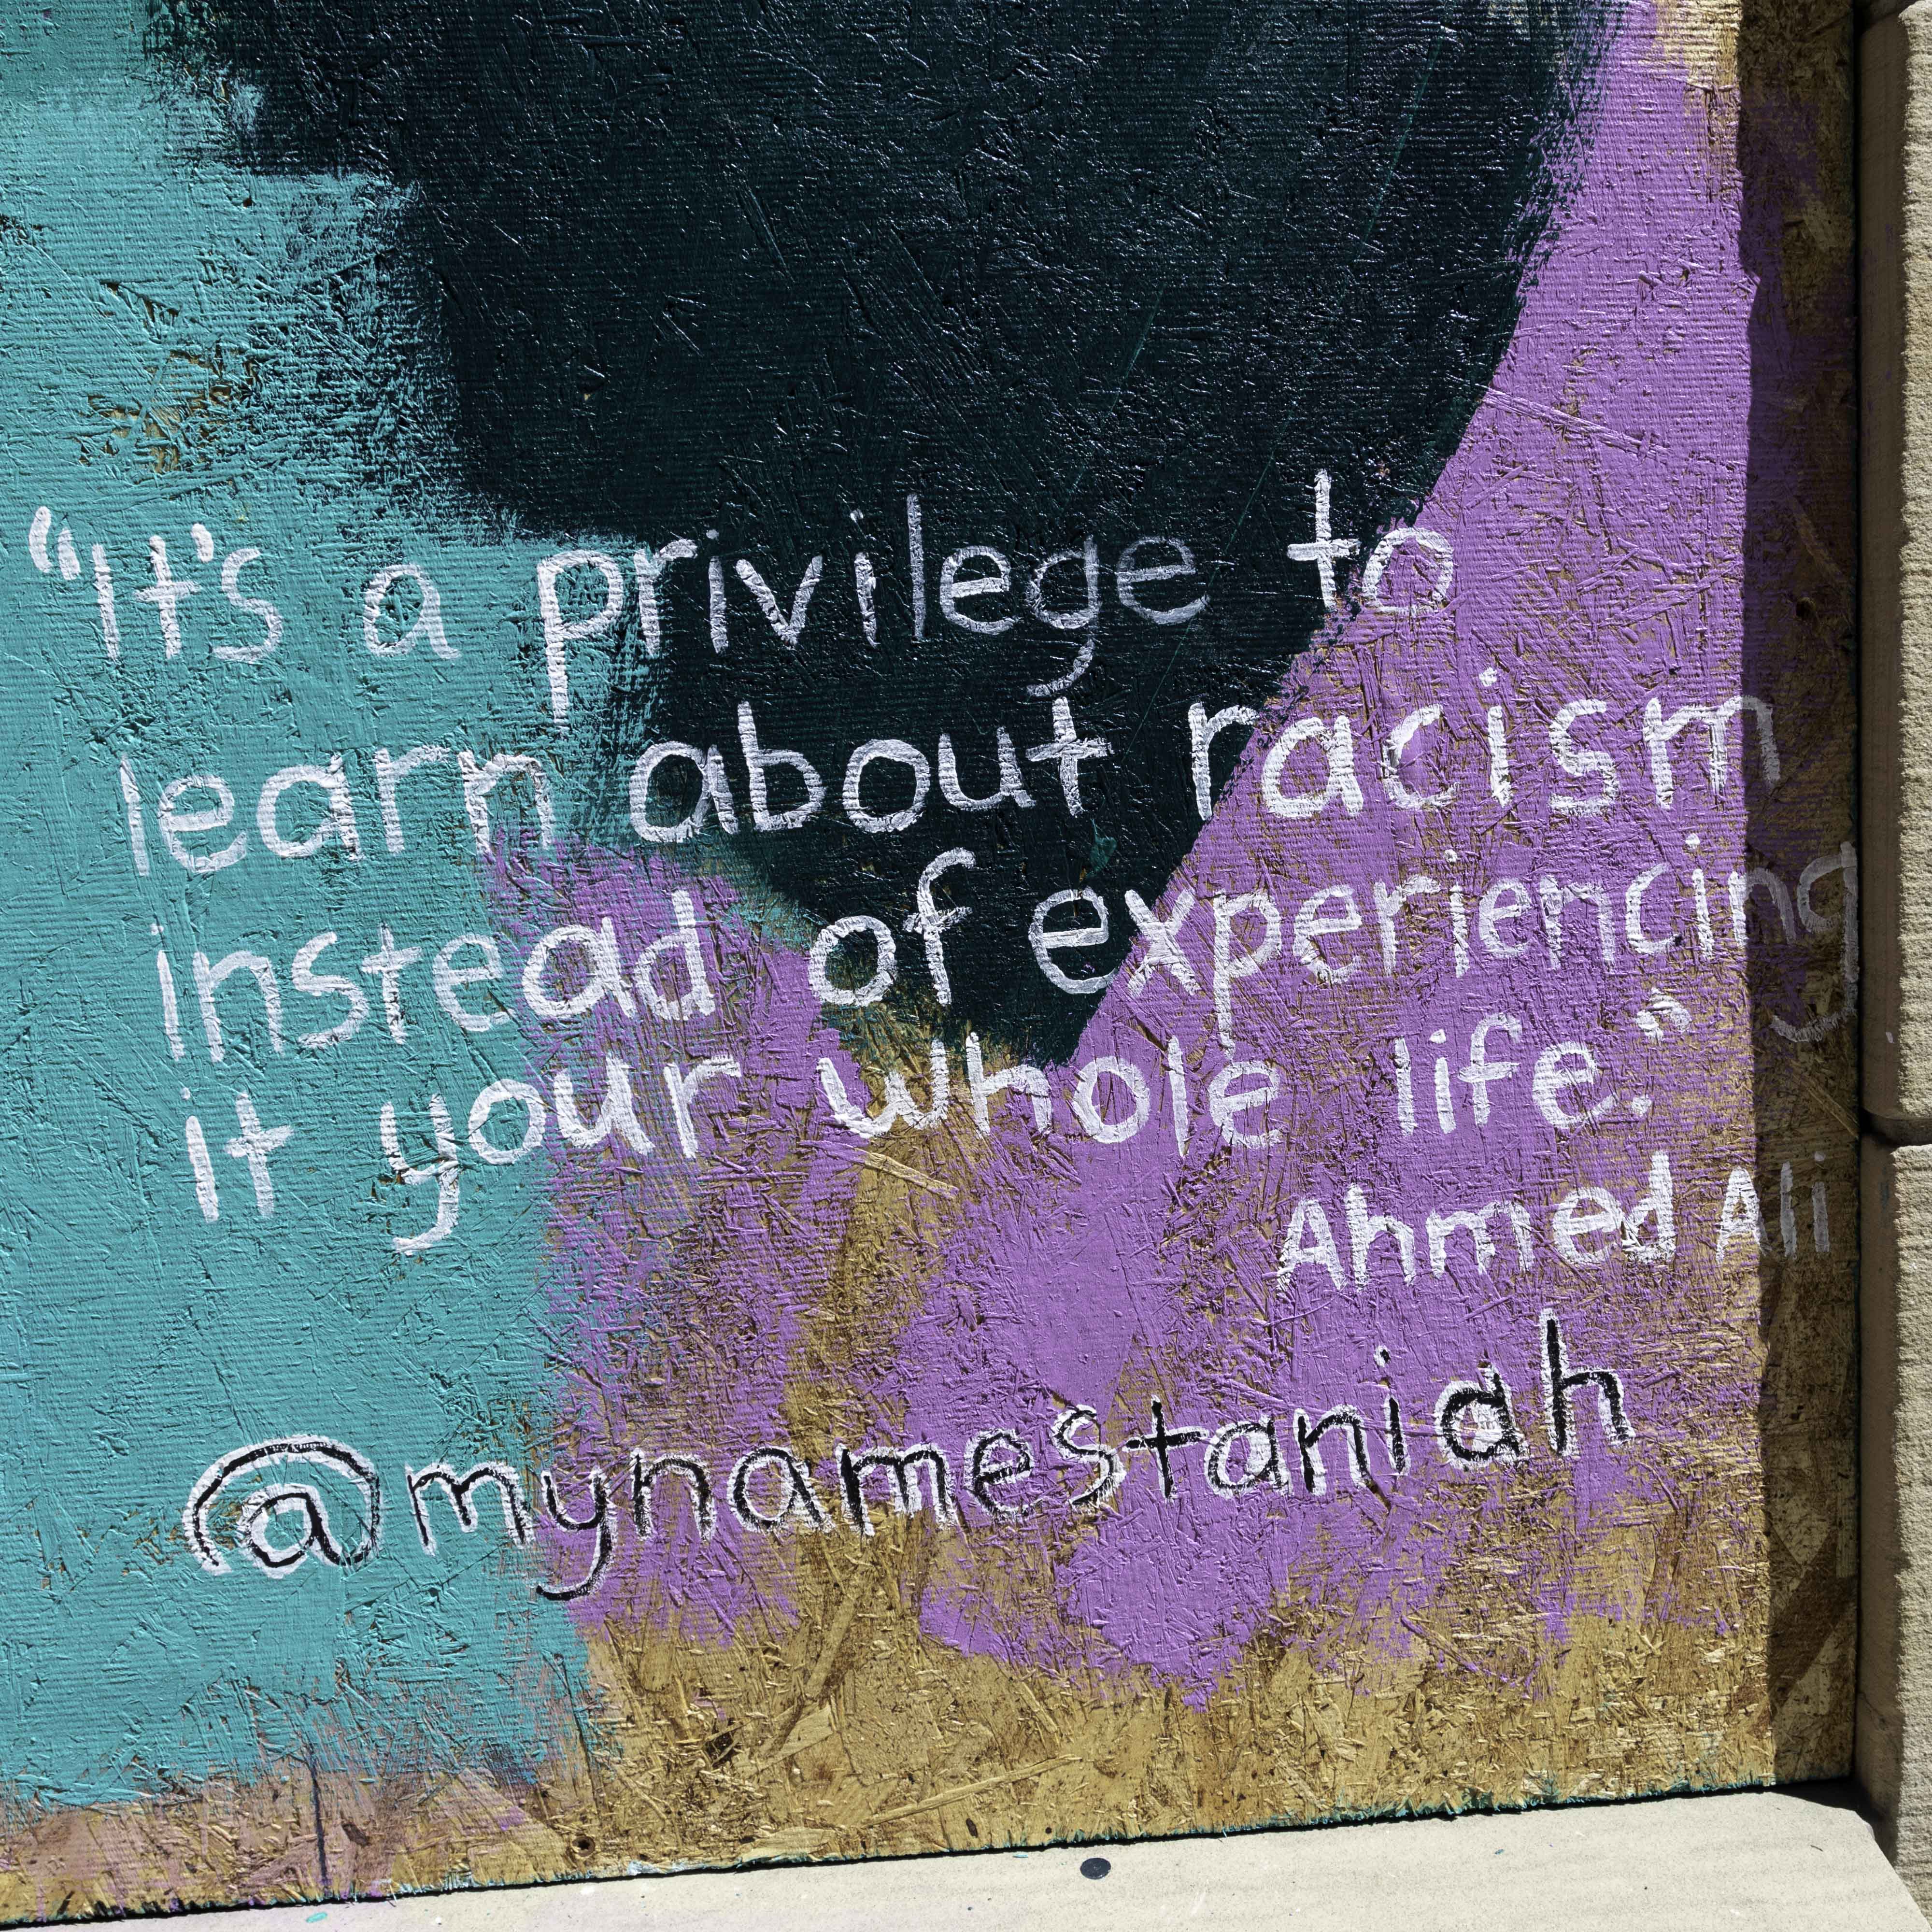 “It's a privilege to
learn about racism
instead of experiencing
it your whole life.”
Ahmed Ali
@mynamestaniah